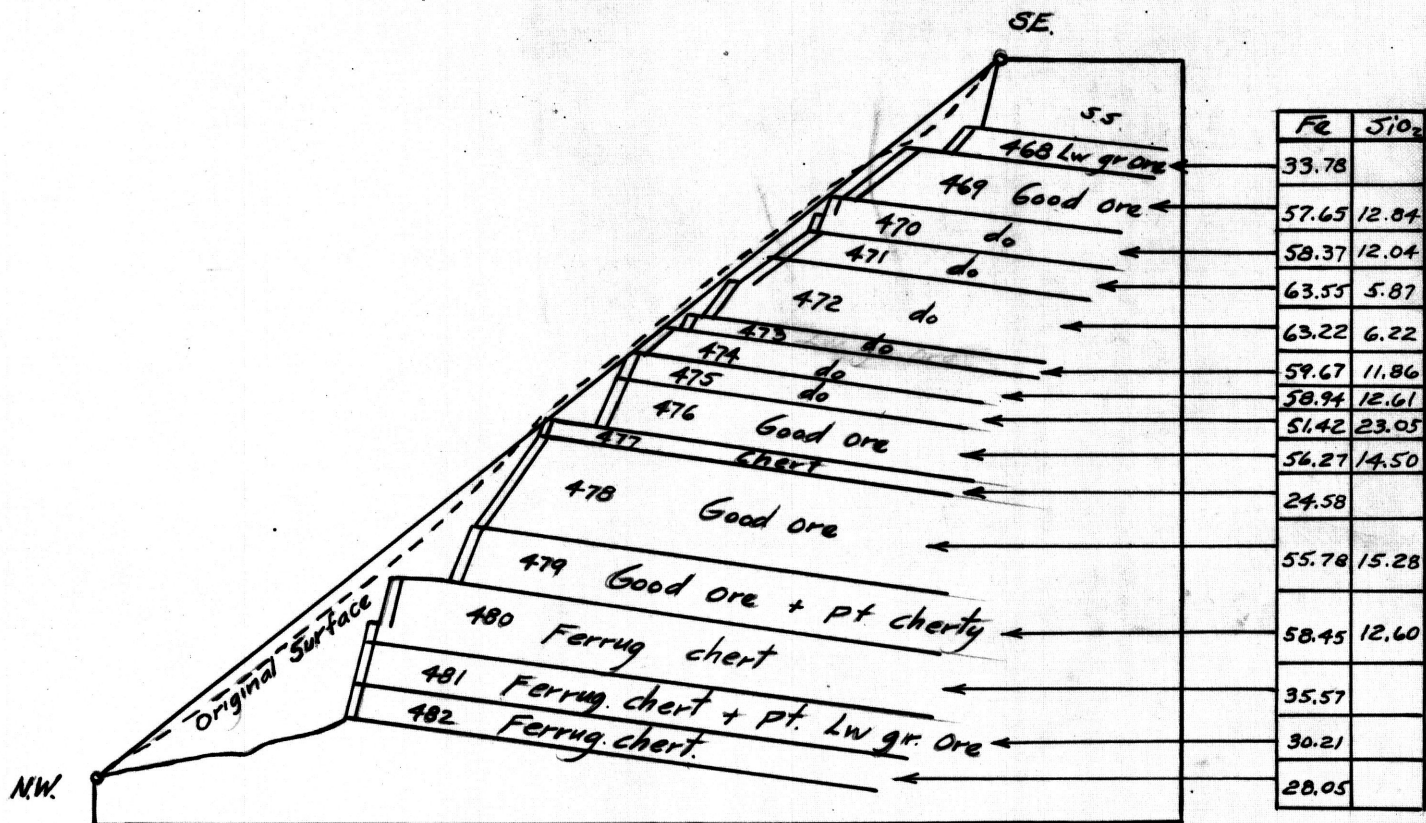 S.E.
S.S.
468 Lw gr ore
469 Good ore
470 do
471 do
472 do
473 do
474 do
475 do
476 Good ore
477 chert
478 Good ore
479 Good ore + pt cherty
480 Ferrug chert
481 Ferrug. chert + pt. Lw gr. ore
482 Ferrug. chert.
Original Surface
N.W.
Fe SiO2
33.78
57.65 12.84
58.37 12.04
63.55 5.87
63.22 6.22
59.67 11.86
58.94 12.61
51.42 23.05
56.27 14.50
24.58
55.78 15.28
58.45 12.60
35.57
30.21
28.05